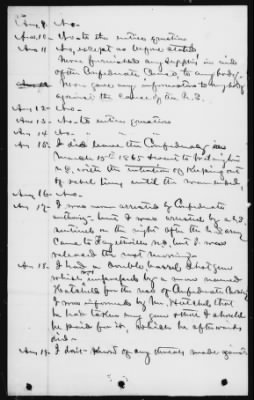 Ans. 9. No.
Ans. 10. No to the entire question
Ans 11 No, except as before stated
None furnished any supplies, in aid
of the Confederate Cause, to any body.
None gave any information to any body
against the cause of the U.S.
Ans 12 No.
Ans 13 No to entire question
Ans 14 No " " "
Ans 15. I did leave the Confederacy in
March 15th 1865 &went to Wilmington
N.C. with the intention of keeping out
of rebel lines until the war ended,
Ans 16. No.
Ans 17. I was never arrested by Confederate
authority but I was arrested by a U.S.
sentinel on the night after the U.S. army
came to Fayetteville N.C. but I was
released the next morning.
Ans 18. I had a double barrel shot gun
which was by a man named
for the use of Confederate
I was informed by Mr. that
he had taken my gun & that I should
be paid for it, which he afterwards
did.
Ans 19. I don't know of any threats made against